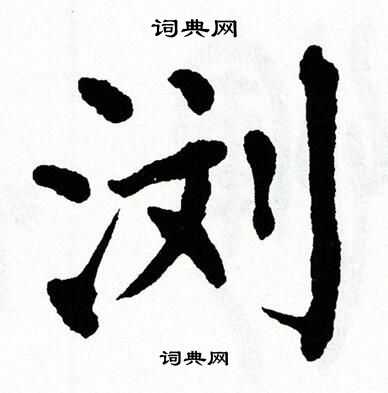 词典网
浏
词典网